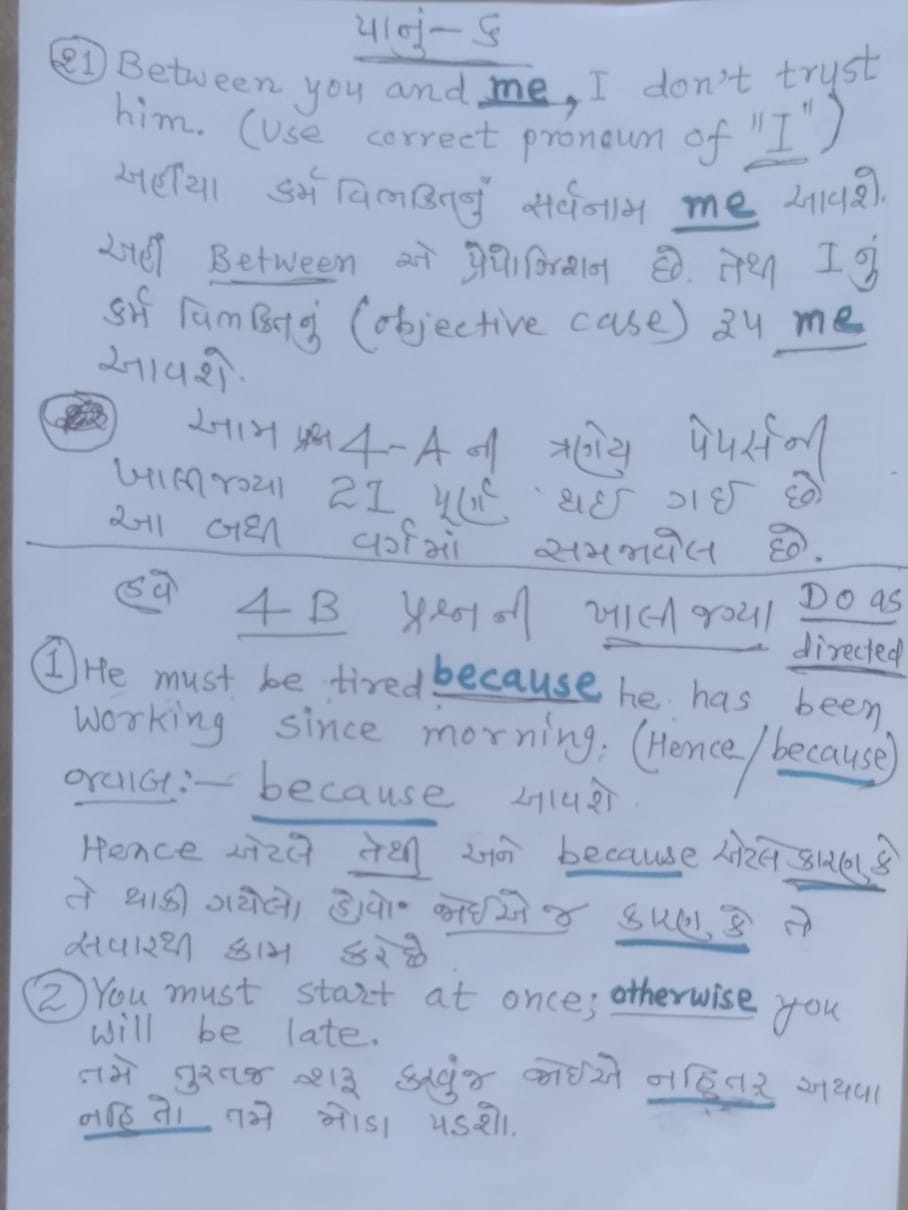 પાનું - ૬
(21) Between you and me, I don't tryst
him. (Use correct pronoun of "I")
અહીંયા કર્મ વિભક્તિનું સર્વનામ me આવશે.
અહીં Between એ પ્રેપોઝિશન છે. તેથી I નું
કર્મ વિભક્તિનું (objective case) રૂપ me
આવશે.
આમ પ્રશ્ન 4-A ની ત્રણેય પેપર્સની
ખાલીજગ્યા 21 પૂર્ણ થઈ ગઈ છે
આ બધી વર્ગમાં સમજાવેલ છે.
હવે 4 B પ્રશ્નની ખાલી જગ્યા Do as
directed
(1) He must be tired because he has been
working since morning. (Hence/because)
જવાબ:- because આવશે.
Hence એટલે તેથી અને because એટલે કારણ કે
તે થાકી ગયેલો હોવો જોઈએ જ કારણ કે તે
સવારથી કામ કરે છે.
(2) You must start at once; otherwise you
will be late.
તમે તુરતજ શરૂ કરવુંજ જોઈએ નહિતર અથવા
નહિ તો તમે મોડા પડશો.